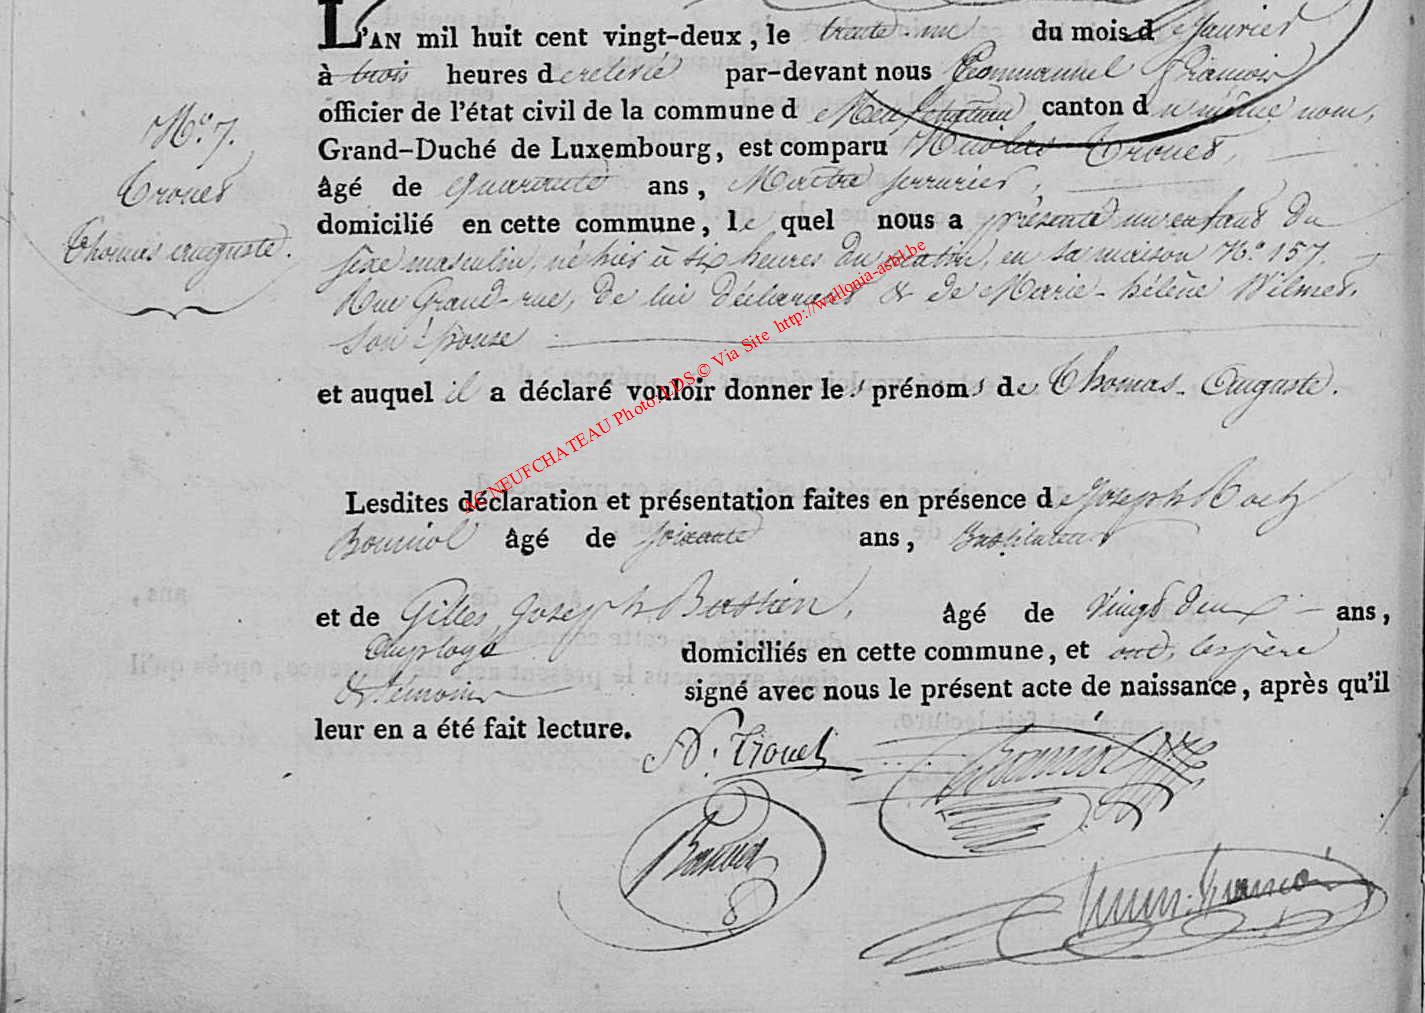 L'AN mil huit cent vingt-deux, le trente-une du mois de Janvier
à trois heures de relevée par-devant nous Emmanuel François
officier de l'état civil de la commune de Neufchateau canton du même nom,
Grand-Duché de Luxembourg, est comparu Nicolas Trouet,
âgé de quarante ans, Maitre serrurier,
domicilié en cette commune, lequel nous a présenté un enfant du
sexe masculin, né hier à six heures du matin, en sa maison No. 157
Rue Grand-rue, de lui déclarant & de Marie-héléne Wilmet,
son épouse
et auquel il a déclaré vouloir donner les prénoms de Thomas-Auguste.
No. 7.
Trouet
Thomas auguste.
Lesdites déclaration et présentation faites en présence de Joseph
Bouniol âgé de soixante ans, Instituteur
et de Gilles Joseph Bastien, âgé de Vingt deux ans,
Employé domiciliés en cette commune, et ont, le père
& témoins signé avec nous le présent acte de naissance, après qu'il
leur en a été fait lecture.
N. Trouet
Bouniol
AC NEUFCHATEAU Photo ADS © Via Site http://wallonia-asbl.be